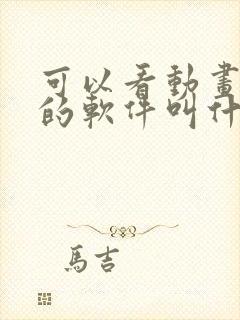 可以看動畫
的軟件叫什
馬吉